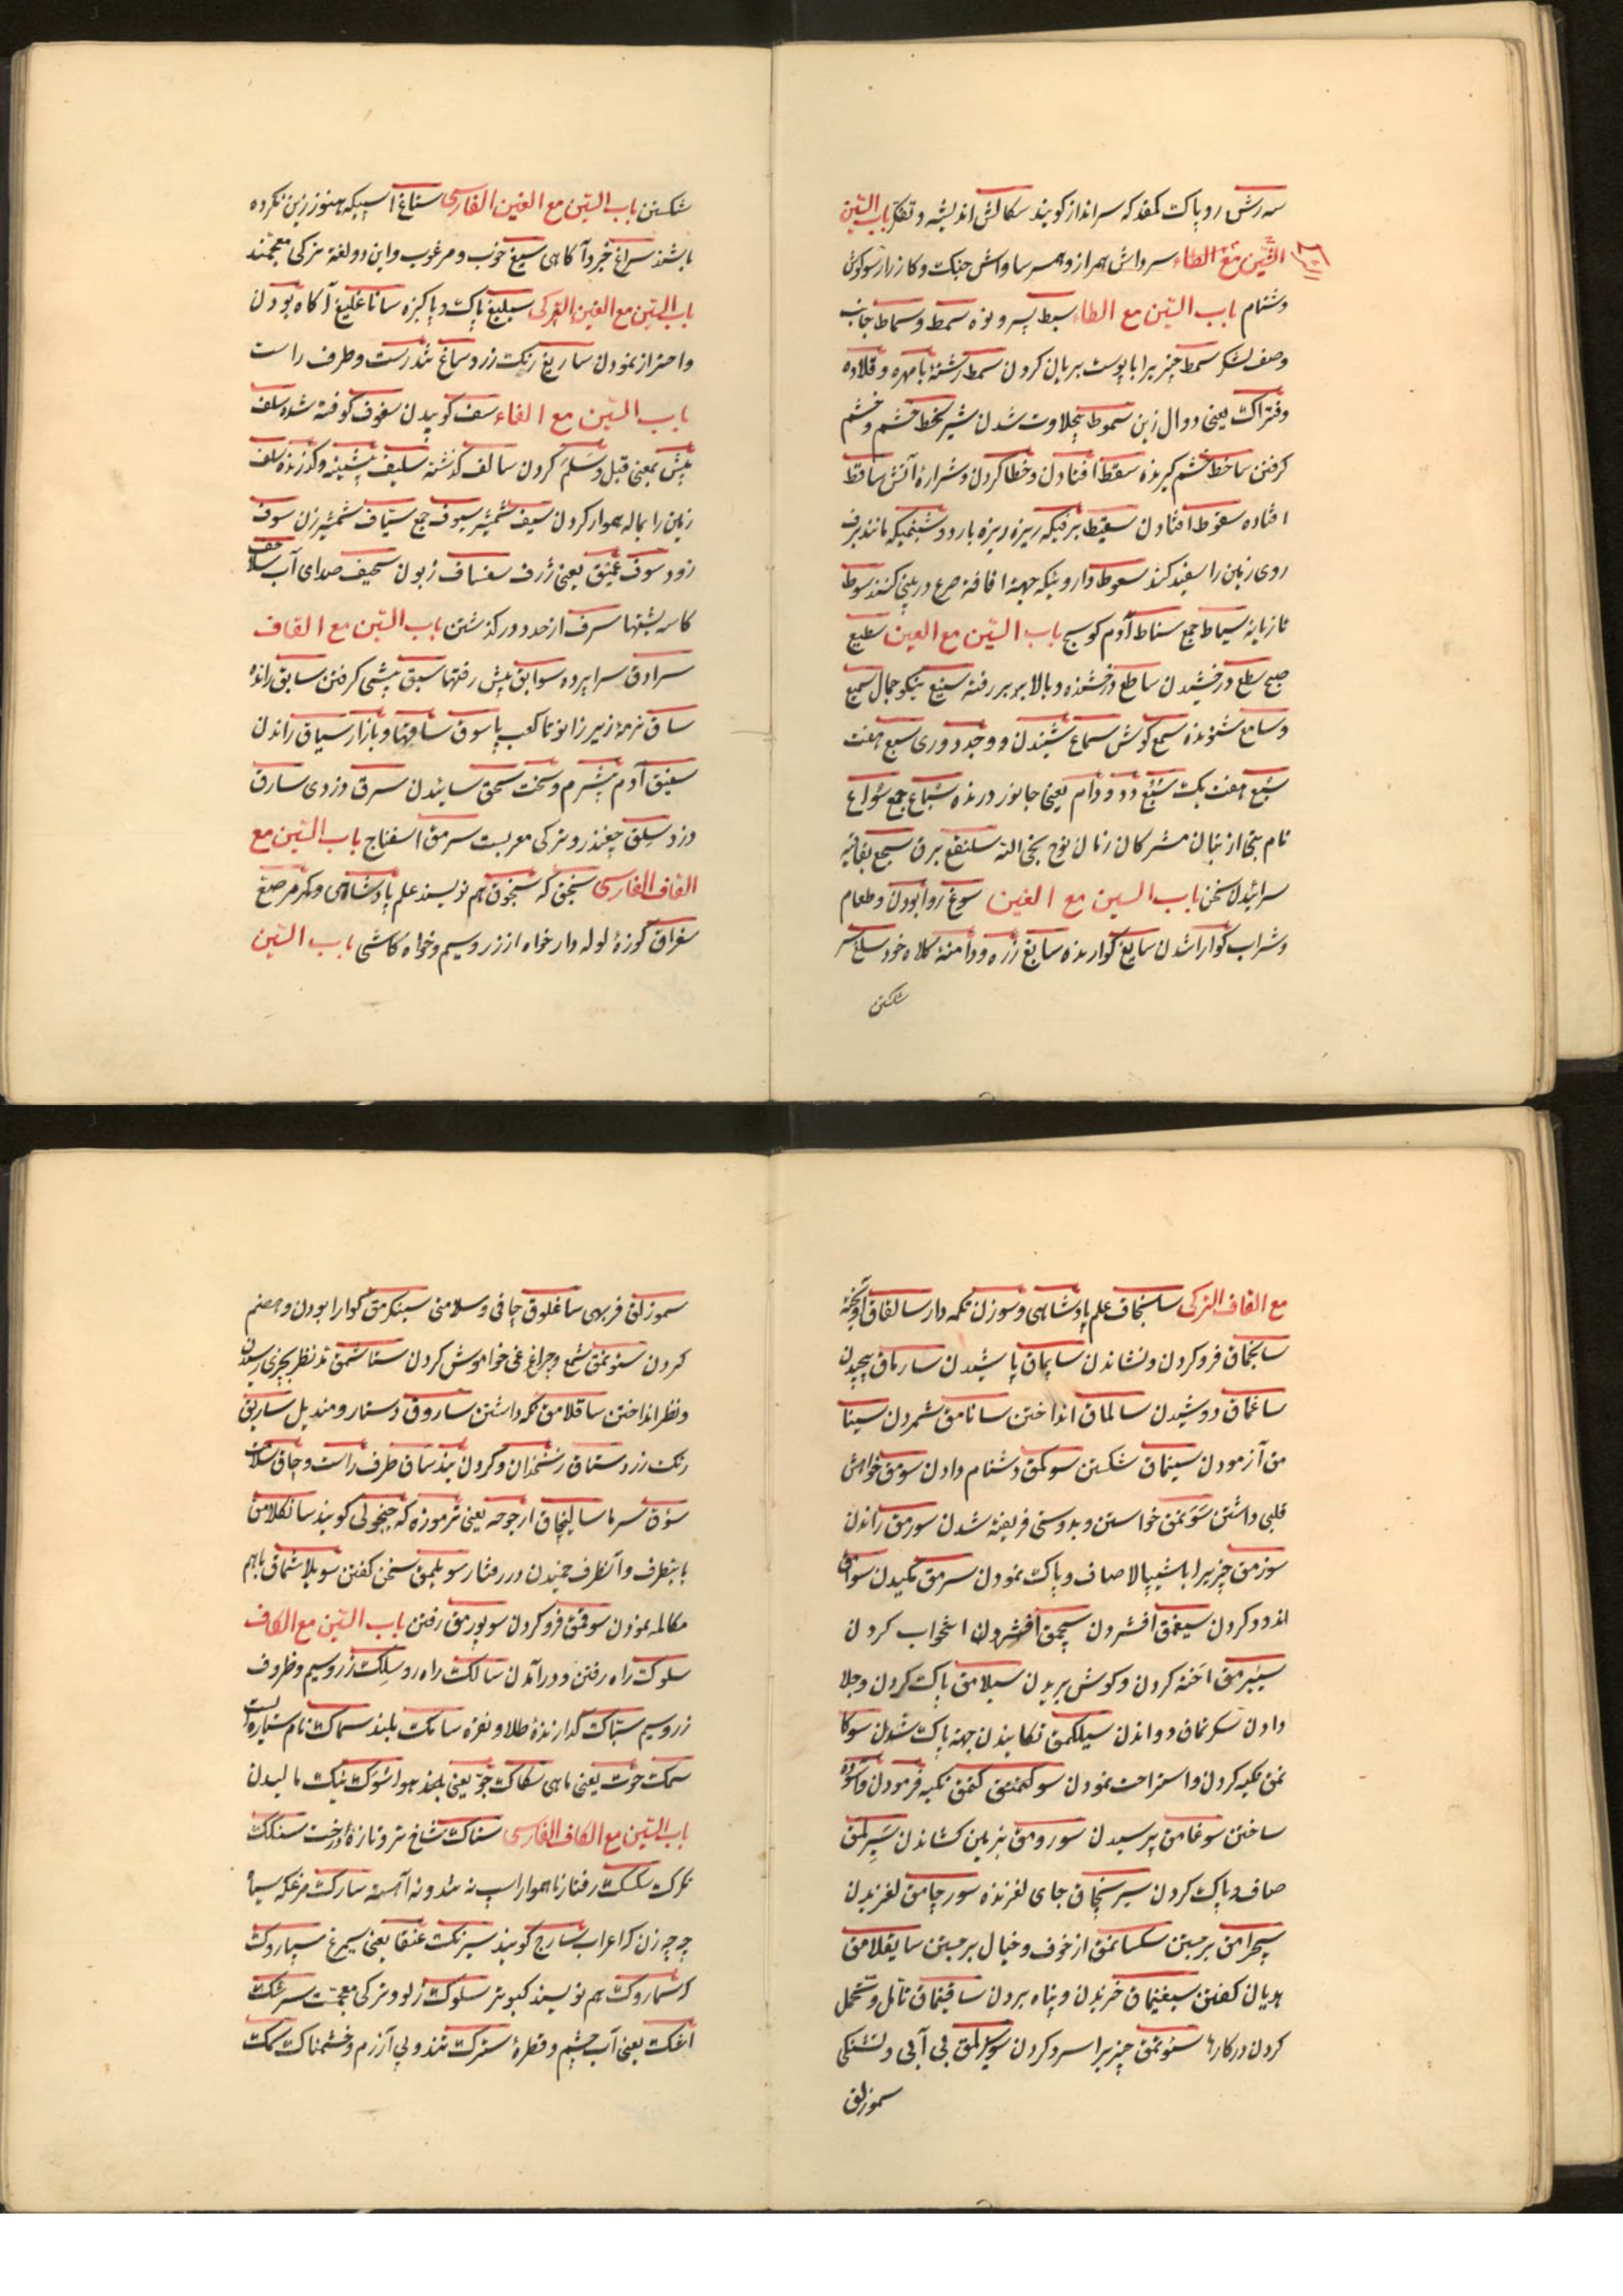 سه رش روپاکت کمقد که سرانداز کویند سکالش اندیشه و تفکر باب السّین
الشّین مع الطاء سرداش همراز و همسر ساواش جنکت و کارزار سوکوش
دشنام باب السّین مع الطاء سبط پسر و نوه سمط و سماط جانب
وصف لشکر سمط چیزیرا با پوست بریان کردن سمط رشتهٔ بامهره و قلاده
وفتراکت یعنی دوال زین سموط بیحلاوت شدن شیر سخط خشم و خشم
کرفتن ساخط خشم کیرنده سقط افتادن و خطا کردن و شرارهٔ آتش ساقط
افتاده سقوط افتادن سقیط برفیکه ریزه ریزه بارد و شبنمیکه مانند برف
روی زمین را سفید کند سعوط داروئیکه جهة افاقهٔ صرع در بینی کنند سوط
تازیانه سیاط جمع سناط آدم کوسج باب السّین مع العین سطیع
صبح سطع درخشیدن ساطع درخشنده و بالا بر بر رفته سنیع نیکو جمال سمیع
وسامع شنونده سمع کوش سماع شنیدن و وجد و دوری سبع هفت
سُبع هفت یکت سَبُع دد و دام یعنی جانور درنده سباع جمع سُواع
نام بتی از بتان مشرکان زمان نوح نجی الله سلنقع برق سجع بقافیه
سرائیدن سخن باب السین مع الغین سوغ روا بودن و طعام
وشراب کوارا شدن سایغ کوارنده سابغ زره و دامنهٔ کلاه خود سلغ سر
شکستن
شکستن باب السّین مع الغین الفارسی ستاغ اسپیکه هنوز زین نکرده
باشند سراغ خبر و آکاهی سیغ خوب و مرغوب و این دو لغة ترکی معجمند
باب السّین مع الغین الترکی سیلیغ پاکت و پاکیزه ساناغلیغ آکاه بودن
واحتراز نمودن ساریغ رنکت زرد ساغ تندرست و طرف راست
باب السّین مع الفاء سف کوبیدن سفوف کوفته شده سلف
پیش بمعنی قبل و سَلَم کردن سالف کذشته سلیف پیشینه و کذرنده سلف
زمین را بماله هموار کردن سیف شمشیر سیوف جمع سیّاف شمشیرزن سوف
زود سوف عمیق یعنی ژرف سفساف زبون سحیف صدای آب سلاحف
کاسه پشتها سرف از حد در کذشتن باب السّین مع القاف
سرادق سراپرده سوابق پیش رفتها سبق پیشی کرفتن سابق رانده
ساق نرمهٔ زیر زانو تا کعب پا سوق ساقها و بازار سیاق راندن
سفیق آدم بیشرم و سخت سحق سائیدن سرق دزدی سارق
دزد سِلق چغندر و ترکی معربست سرمق اسفناج باب السّین مع
القاف الفارسی سنجق که سنجوق هم نویسند علم پادشاهی و کمر مرصع
سغراق کوزهٔ لوله دار خواه از زر و سیم و خواه کاشی باب السّین
مع القاف الترکی سانجاق علم پادشاهی و سوزن تکمه دار سالقاق آویخته
سانجماق فرو کردن و نشاندن ساپماق پاشیدن سارماق پیچیدن
ساغماق دوشیدن سالماق انداختن سانامق شمردن سینا
مق آزمودن سینماق شکستن سوکمق دشنام دادن سومق خواهش
قلبی داشتن سَوَنمق خواستن و بدوستی فریفته شدن سورمق راندن
سوزمق چیزیرا باشیپالا صاف و پاکت نمودن سرمق مکیدن سوامق
اندود کردن سیغمق افشردن سیچمق استخواب کردن
سیپرمق اخته کردن و کوش بریدن سیلامق پاکت کردن و جلا
دادن سکرتمان دواندن سیلکمق تکانیدن جهة پاکت شدن سوکا
نمق تکیه کردن و استراحت نمودن سوکنمق کتمق تکیه فرمودن و آسوده
ساختن سوغامق پرسیدن سورومق بزمین کشاندن سَپِرکمق
صاف و پاکت کردن سیرنجاق جای لغزنده سورچامق لغزیدن
سیچرامق برجستن سکسانمق از خوف و خیال برجستن سایقلامق
هذیان کفتن سیغینماق خزیدن و پناه بردن ساقینماق تامل و تحمل
کردن در کارها سئوتمق چیزیرا سرد کردن سویرکمق بی آبی و تشنکی
سموزلق
سموزلق فربهی ساغلوق چاقی و سلامتی سینکرمق کوارا بودن و هضم
کردن سئونمق شمع و چراغ غی خواموش کردن ستاشمق تند نظر بچیزی رسیدن
ونظر انداختن ساقلامق نکه داشتن ساروق دستار و مندیل ساریق
رنکت زرد ستاق زنخدان و کردن بند ساق طرف راست و چاق سلامت
سؤق سرما سالینجاق ارجوحه یعنی نرموزه که چنچولی کویند سانکلامق
باینطرف و آنطرف جنبیدن در رفتار سویلمق سخن کفتن سویلاشماق باهم
مکالمه نمودن سوقمق فرو کردن سوپورمق رفتن باب السّین مع الکاف
سلوکت راه رفتن و درآمدن سالکت راه رو سِلکت زر و سیم و ظروف
زر و سیم سبّاکت کدازندهٔ طلا و نقره سامکت بلند سماکت نام ستاره است
سمکت حوت یعنی ماهی سکاکت جوّ یعنی بلند هوا سَوکت نیک مالیدن
باب السّین مع الکاف الفارسی ستاکت شاخ تر و تازهٔ درخت سنکت
تکرک سکسکت رفتار ناهموار اسب نه تند و نه آهسته سارکت مرغکه سیاه
چرچه زن که اعراب سارج کویند سیرنکت عنقا یعنی سیمرغ سپاروکت
که سماروکت هم نویسند کبوتر سلوکت زلو و ترکی معجّمست سرشکت
اشکت یعنی آب چشم و قطرهٔ سترکت تند و بی آزرم و خشمناکت سمکت